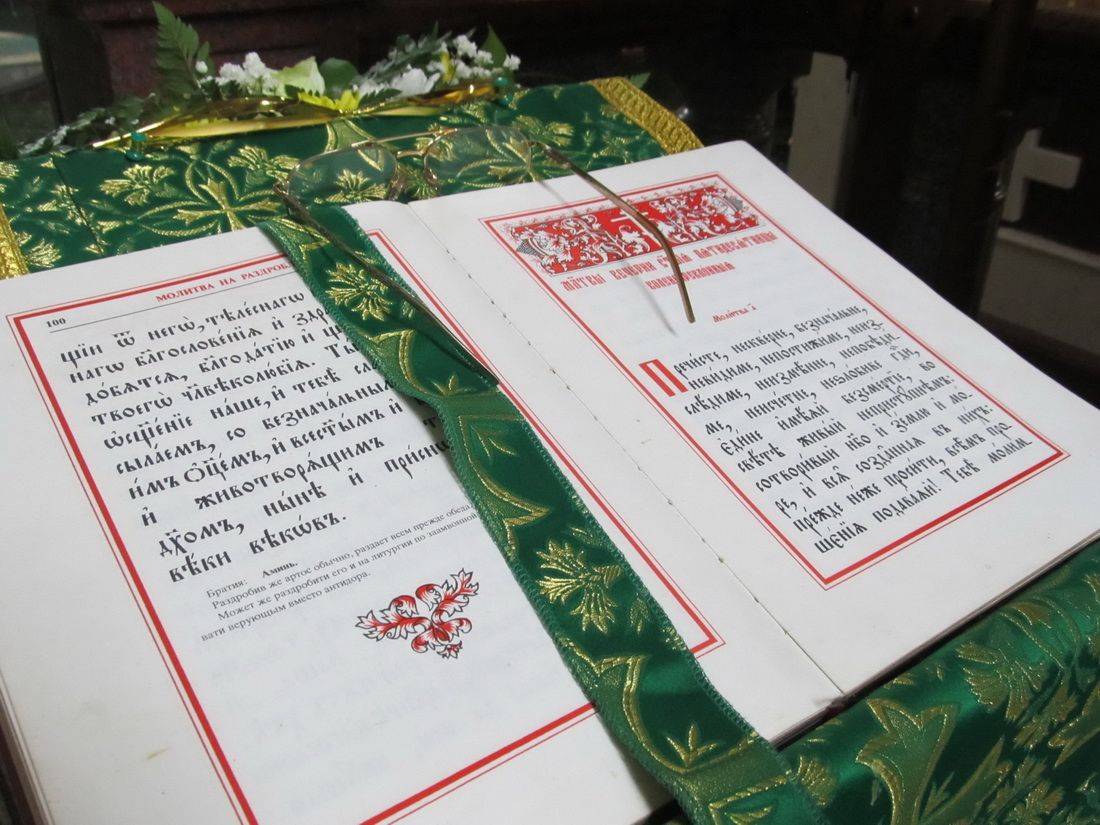 МОЛИТВА НА РАЗДРОБЛ
100
цїи ѿ негѡ, тѣлеснагѡ
нагѡ бл҃гословенїѧ и здра
добѧтсѧ, благодатїю и ще
твоегѡ чл҃вѣколюбїѧ. Ты
ѡсщ҃енїе наше, и тебѣ сла
сылаемъ, со безначальным
имъ ѻц҃емъ, и всест҃ымъ и
и животворѧщимъ т
дх҃омъ, нынѣ и присн
вѣки вѣкѡвъ.
Братия: Аминь.
Раздробив же артос обычно, раздает всем прежде обеда.
Может же раздробити его и на литургии по заамвонной
вати верующым вместо антидора.
мл҃твы вечерни ст҃ыѧ пѧтдесѧтницы
колѣнопреклонныѧ
Молитва а҃
Пречисте, нескверне, безначальне,
невидиме, непостижиме, неиз
слѣдиме, неизмѣнне, непобѣди
ме, неисчетне, незлобиве гд҃и,
єдине имѣѧй безсмертїе, во
свѣтѣ живый неприступнѣмъ:
сотворивый нб҃о и землю и мо
ре, и всѧ созданнаѧ въ нихъ:
прежде неже просити, всѣмъ про
шенїѧ подаваѧй! Тебѣ молим